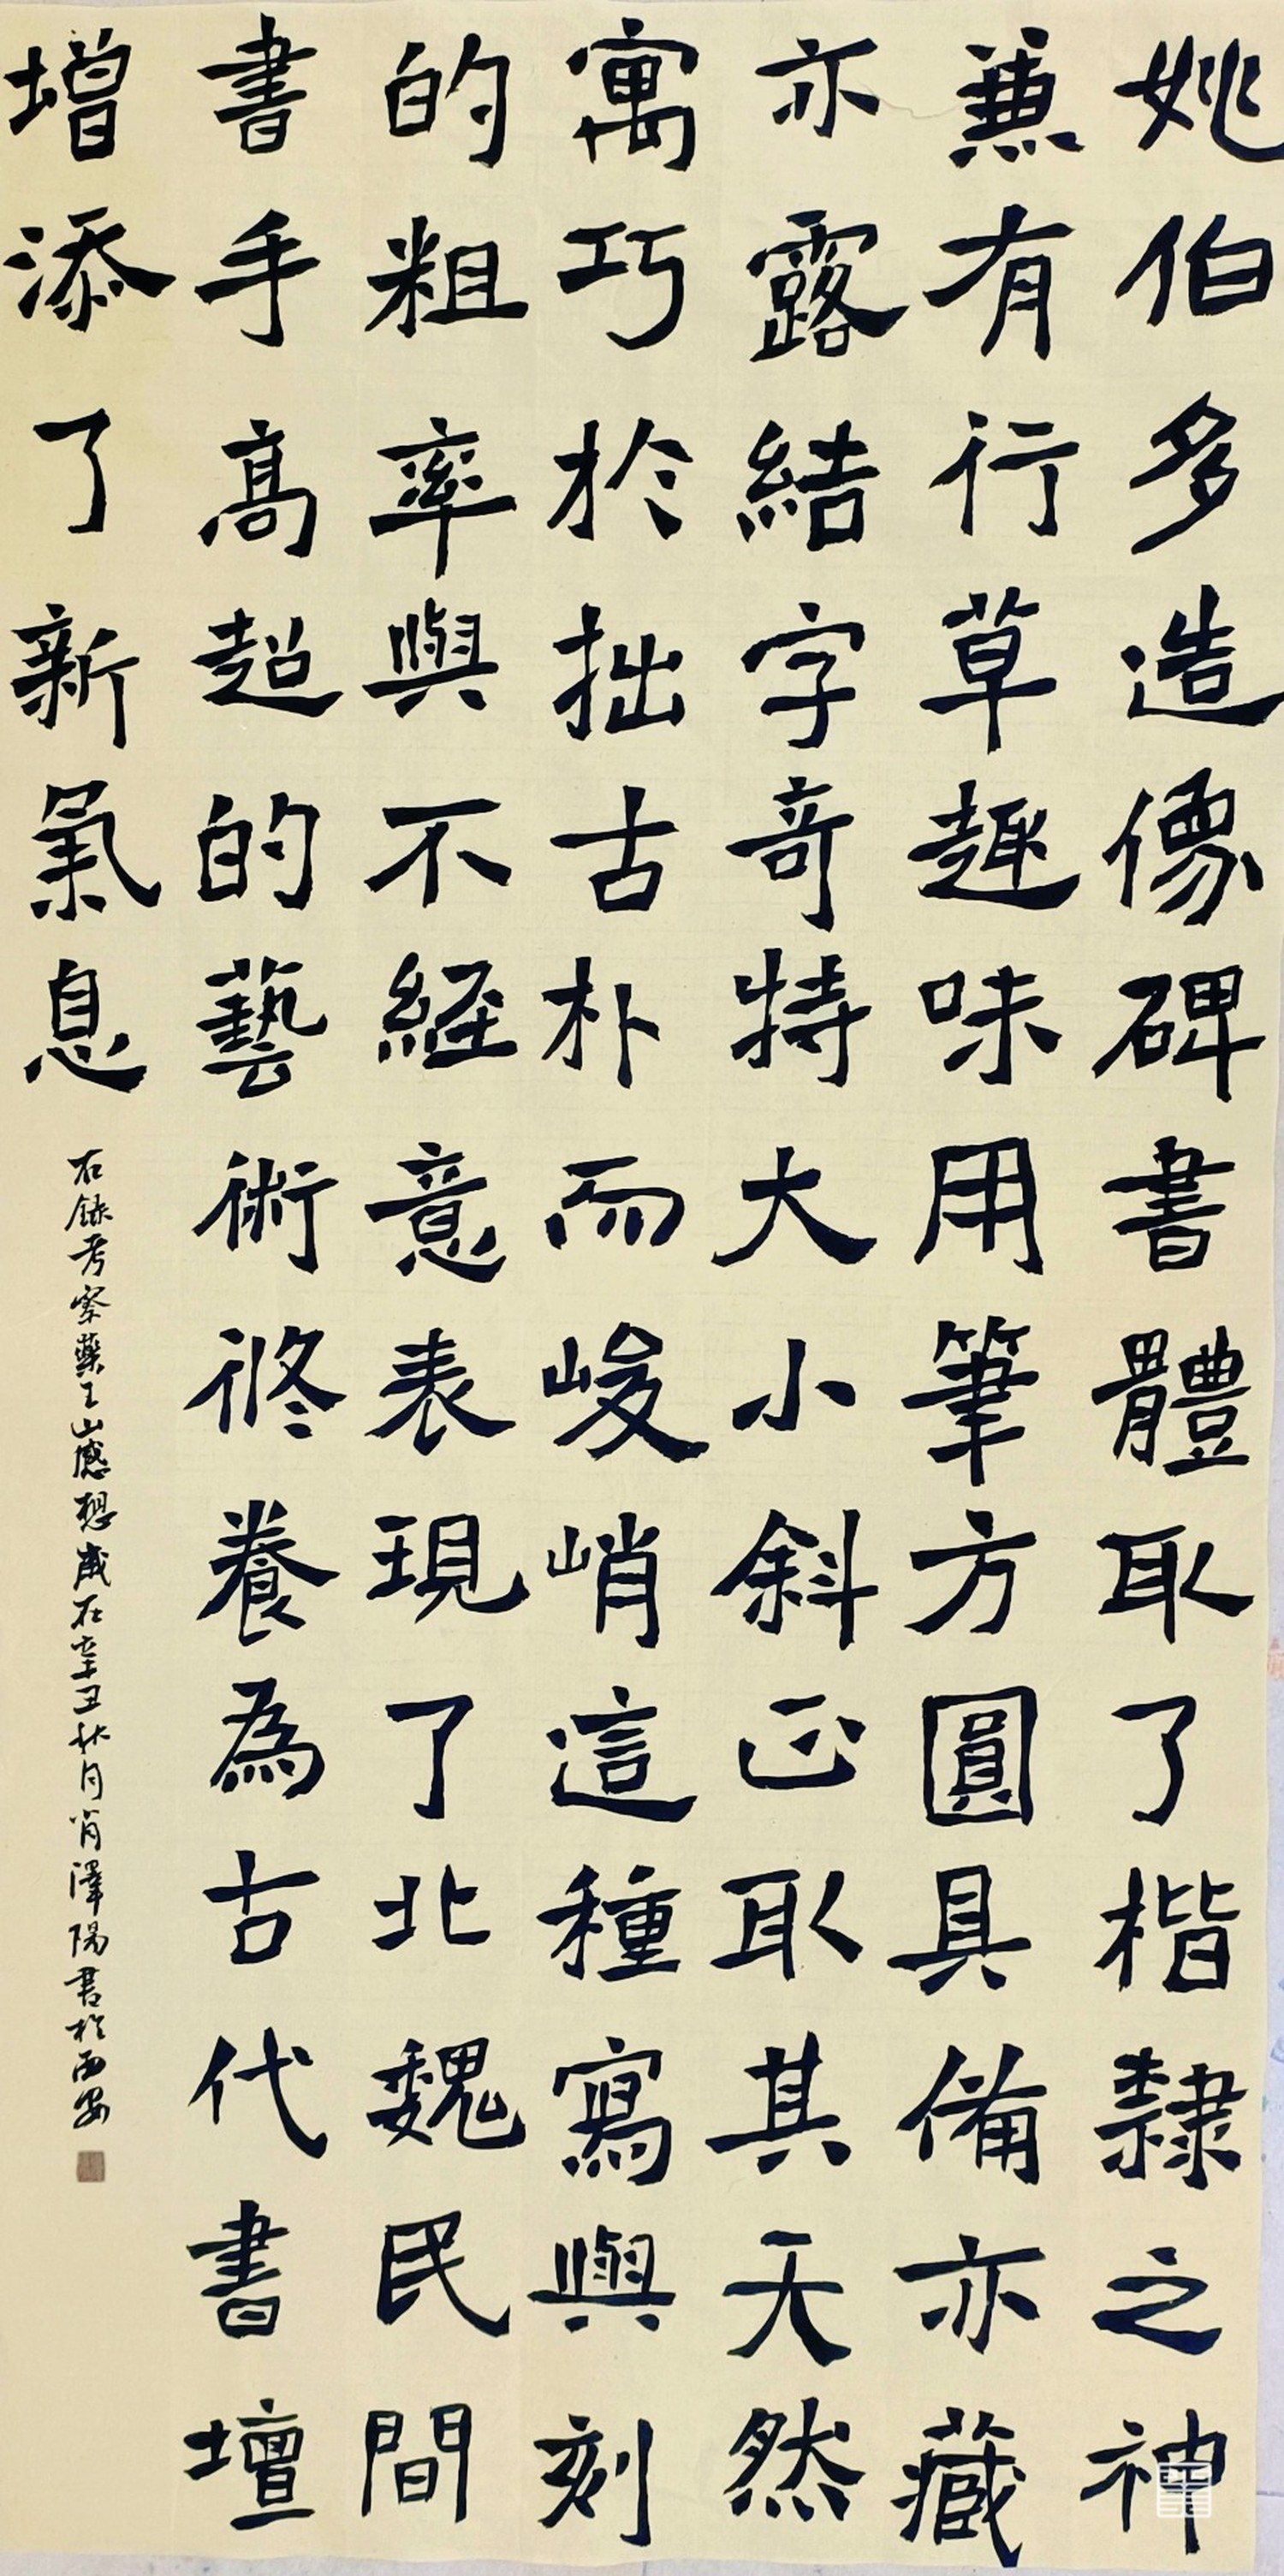 姚伯多造像碑書體取了楷隸之神
兼有行草趣味用筆方圓具備亦藏
亦露結字奇特大小斜正取其天然
寓巧於拙古朴而峻峭這種寫與刻
的粗率與不經意表現了北魏民間
書手高超的藝術修養為古代書壇
增添了新氣息
右錄考察藥王山感想歲在辛丑秋月肖澤陽書於西安